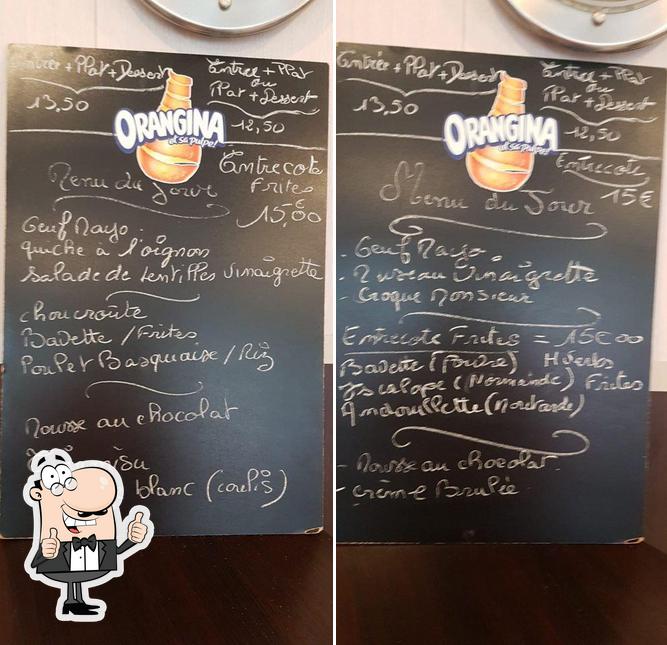 Entrée + Plat + Dessert
13,50
Entree + Plat
ou
Plat + Dessert
12,50
ORANGINA
et sa pulpe!
Menu du Jour
Entrecote
Frites
15,00 €
Oeuf Mayo.
quiche à l'oignon
Salade de lentilles vinaigrette
choucroute
Bavette / Frites
Poulet Basquaise / Riz
Mousse au chocolat
blanc (coulis)
Entrée + Plat + Dessert
13,50
Entree + Plat
ou
Plat + Dessert
12,50
ORANGINA
et sa pulpe!
Entrecote
15€
Menu du Jour
- Oeuf Mayo.
- Museau Vinaigrette
- Croque Monsieur
Entrecote Frites = 15€00
Bavette (Poivre) H verts
Escalope (Normande) Frites
Andouillette (Moutarde)
- Mousse au chocolat.
- crème Brulée